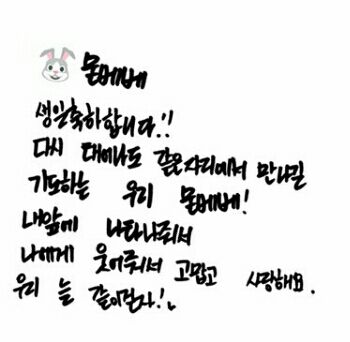 몬베베
생일축하합니다!!
다시 태어나도 같은자리에서 만나길
기도하는 우리 몬베베!
내앞에 나타나줘서
나에게 웃어줘서 고맙고 사랑해요.
우리 늘 같이걷자!